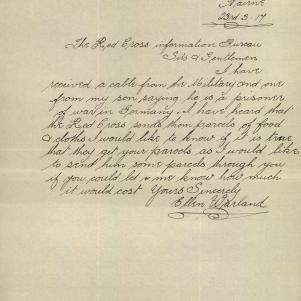 Nairne
23rd.3.17
The Red Cross information Bureau
Sirs & Gentlemen
I have
received a cable from the Military and one
from my son saying he is a prisoner
of war in Germany. I have heard that
the Red Cross sends them parcels of food
& cloths I would like to know if it is true
that they get your parcels as I would like
to send him some parcels through you
if you could let me know how much
it would cost Yours Sincerely
Ellen Warland